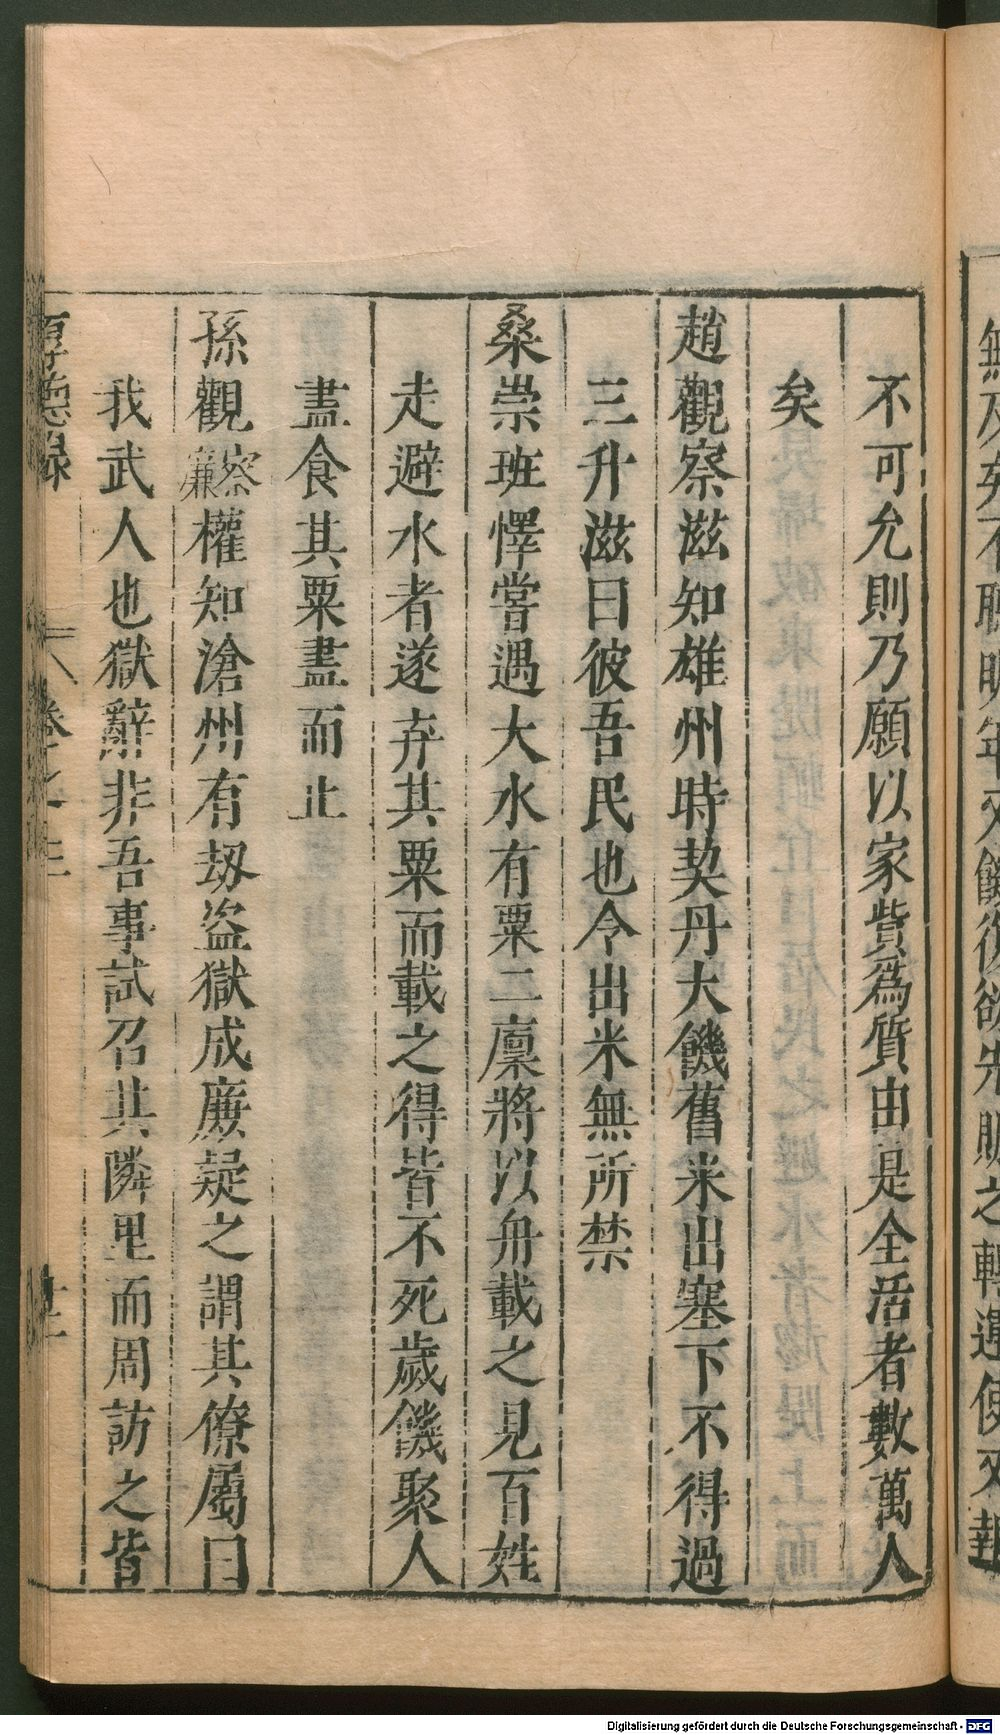 不可允則乃願以家貲爲質由是全活者數萬人
矣
趙觀察滋知雄州時契丹大饑舊米出塞下不得過
三升滋曰彼吾民也令出米無所禁
桑崇班懌嘗遇大水有粟二廩將以舟載之見百姓
走避水者遂弃其粟而載之得皆不死歲饑聚人
盡食其粟盡而止
孫觀察廉權知滄州有刼盜獄成廉疑之謂其僚屬曰
我武人也獄辭非吾事試召其隣里而周訪之皆
厚德録 卷之三
Digitalisierung gefördert durch die Deutsche Forschungsgemeinschaft - DFG